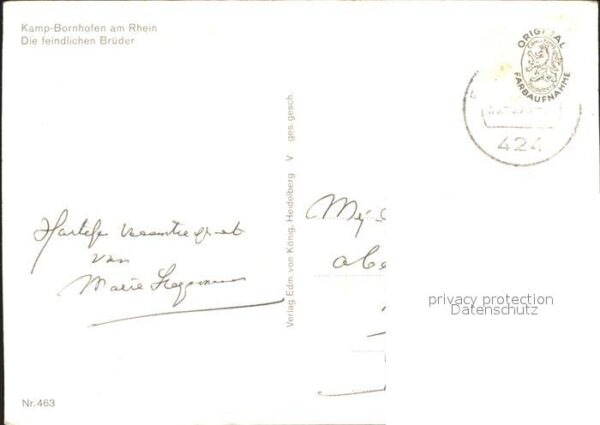 Kamp-Bornhofen am Rhein
Die feindlichen Brüder
ORIGINAL
FARBAUFNAHME
424
Hartelijke vacantiegroet
van
Marie
Verlag Edm von König, Heidelberg V ges. gesch.
Mej.
privacy protection
Datenschutz
Nr. 463